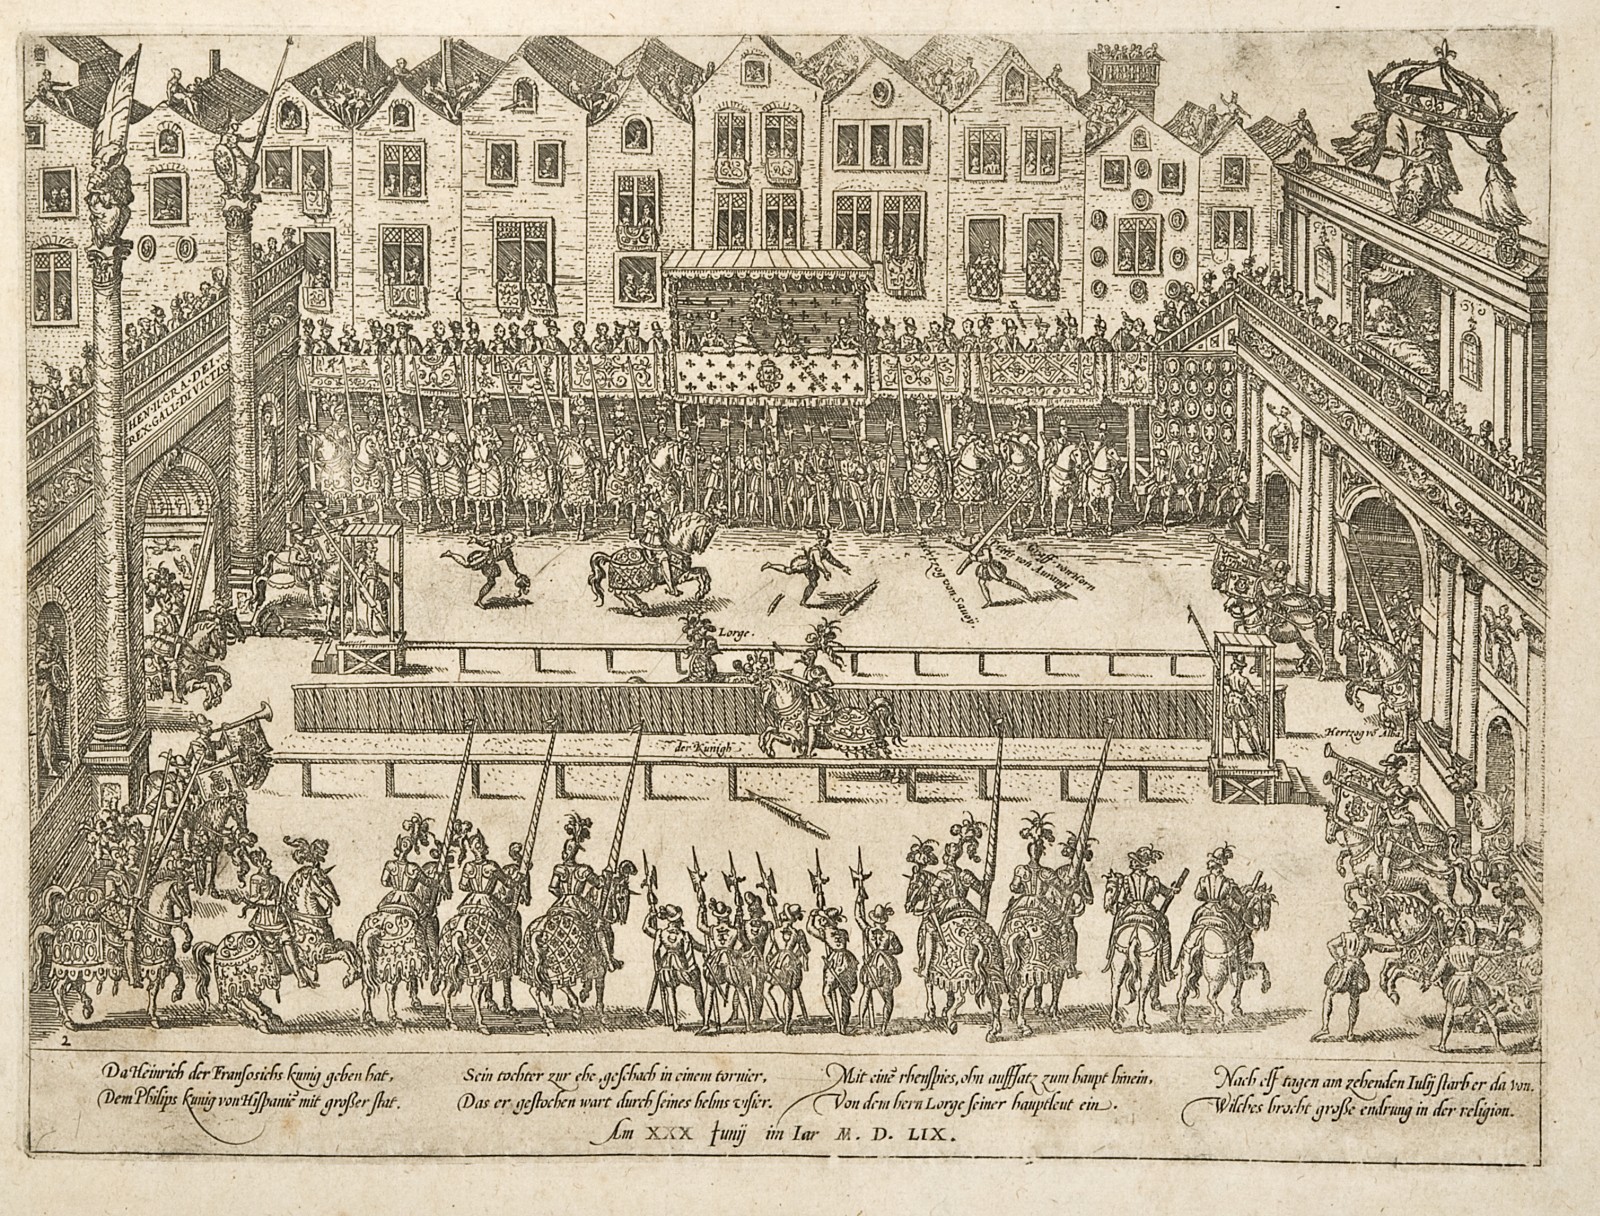 HEN·II·GRA·DEI·
REX·GALL·INVICTIS
Lorge.
Hertzog von Sauoij.
der Kunigh
Hertzog vō Alba
2
Da Heinrich der Fransosichs kunig geben hat,
Dem Philips kunig von Hispaniē mit großer stat.
Sein tochter zur ehe, geschach in einem tornier,
Das er gestochen wart durch seines helms visier.
Mit einē rhenspies, ohn auffsatz zum haupt hinein,
Von dem hern Lorge seiner hauptleut ein.
Nach elf tagen am zehenden Iulij starb er da von.
Wilches brocht große endrung in der religion.
Am XXX Junij im Iar M. D. LIX.